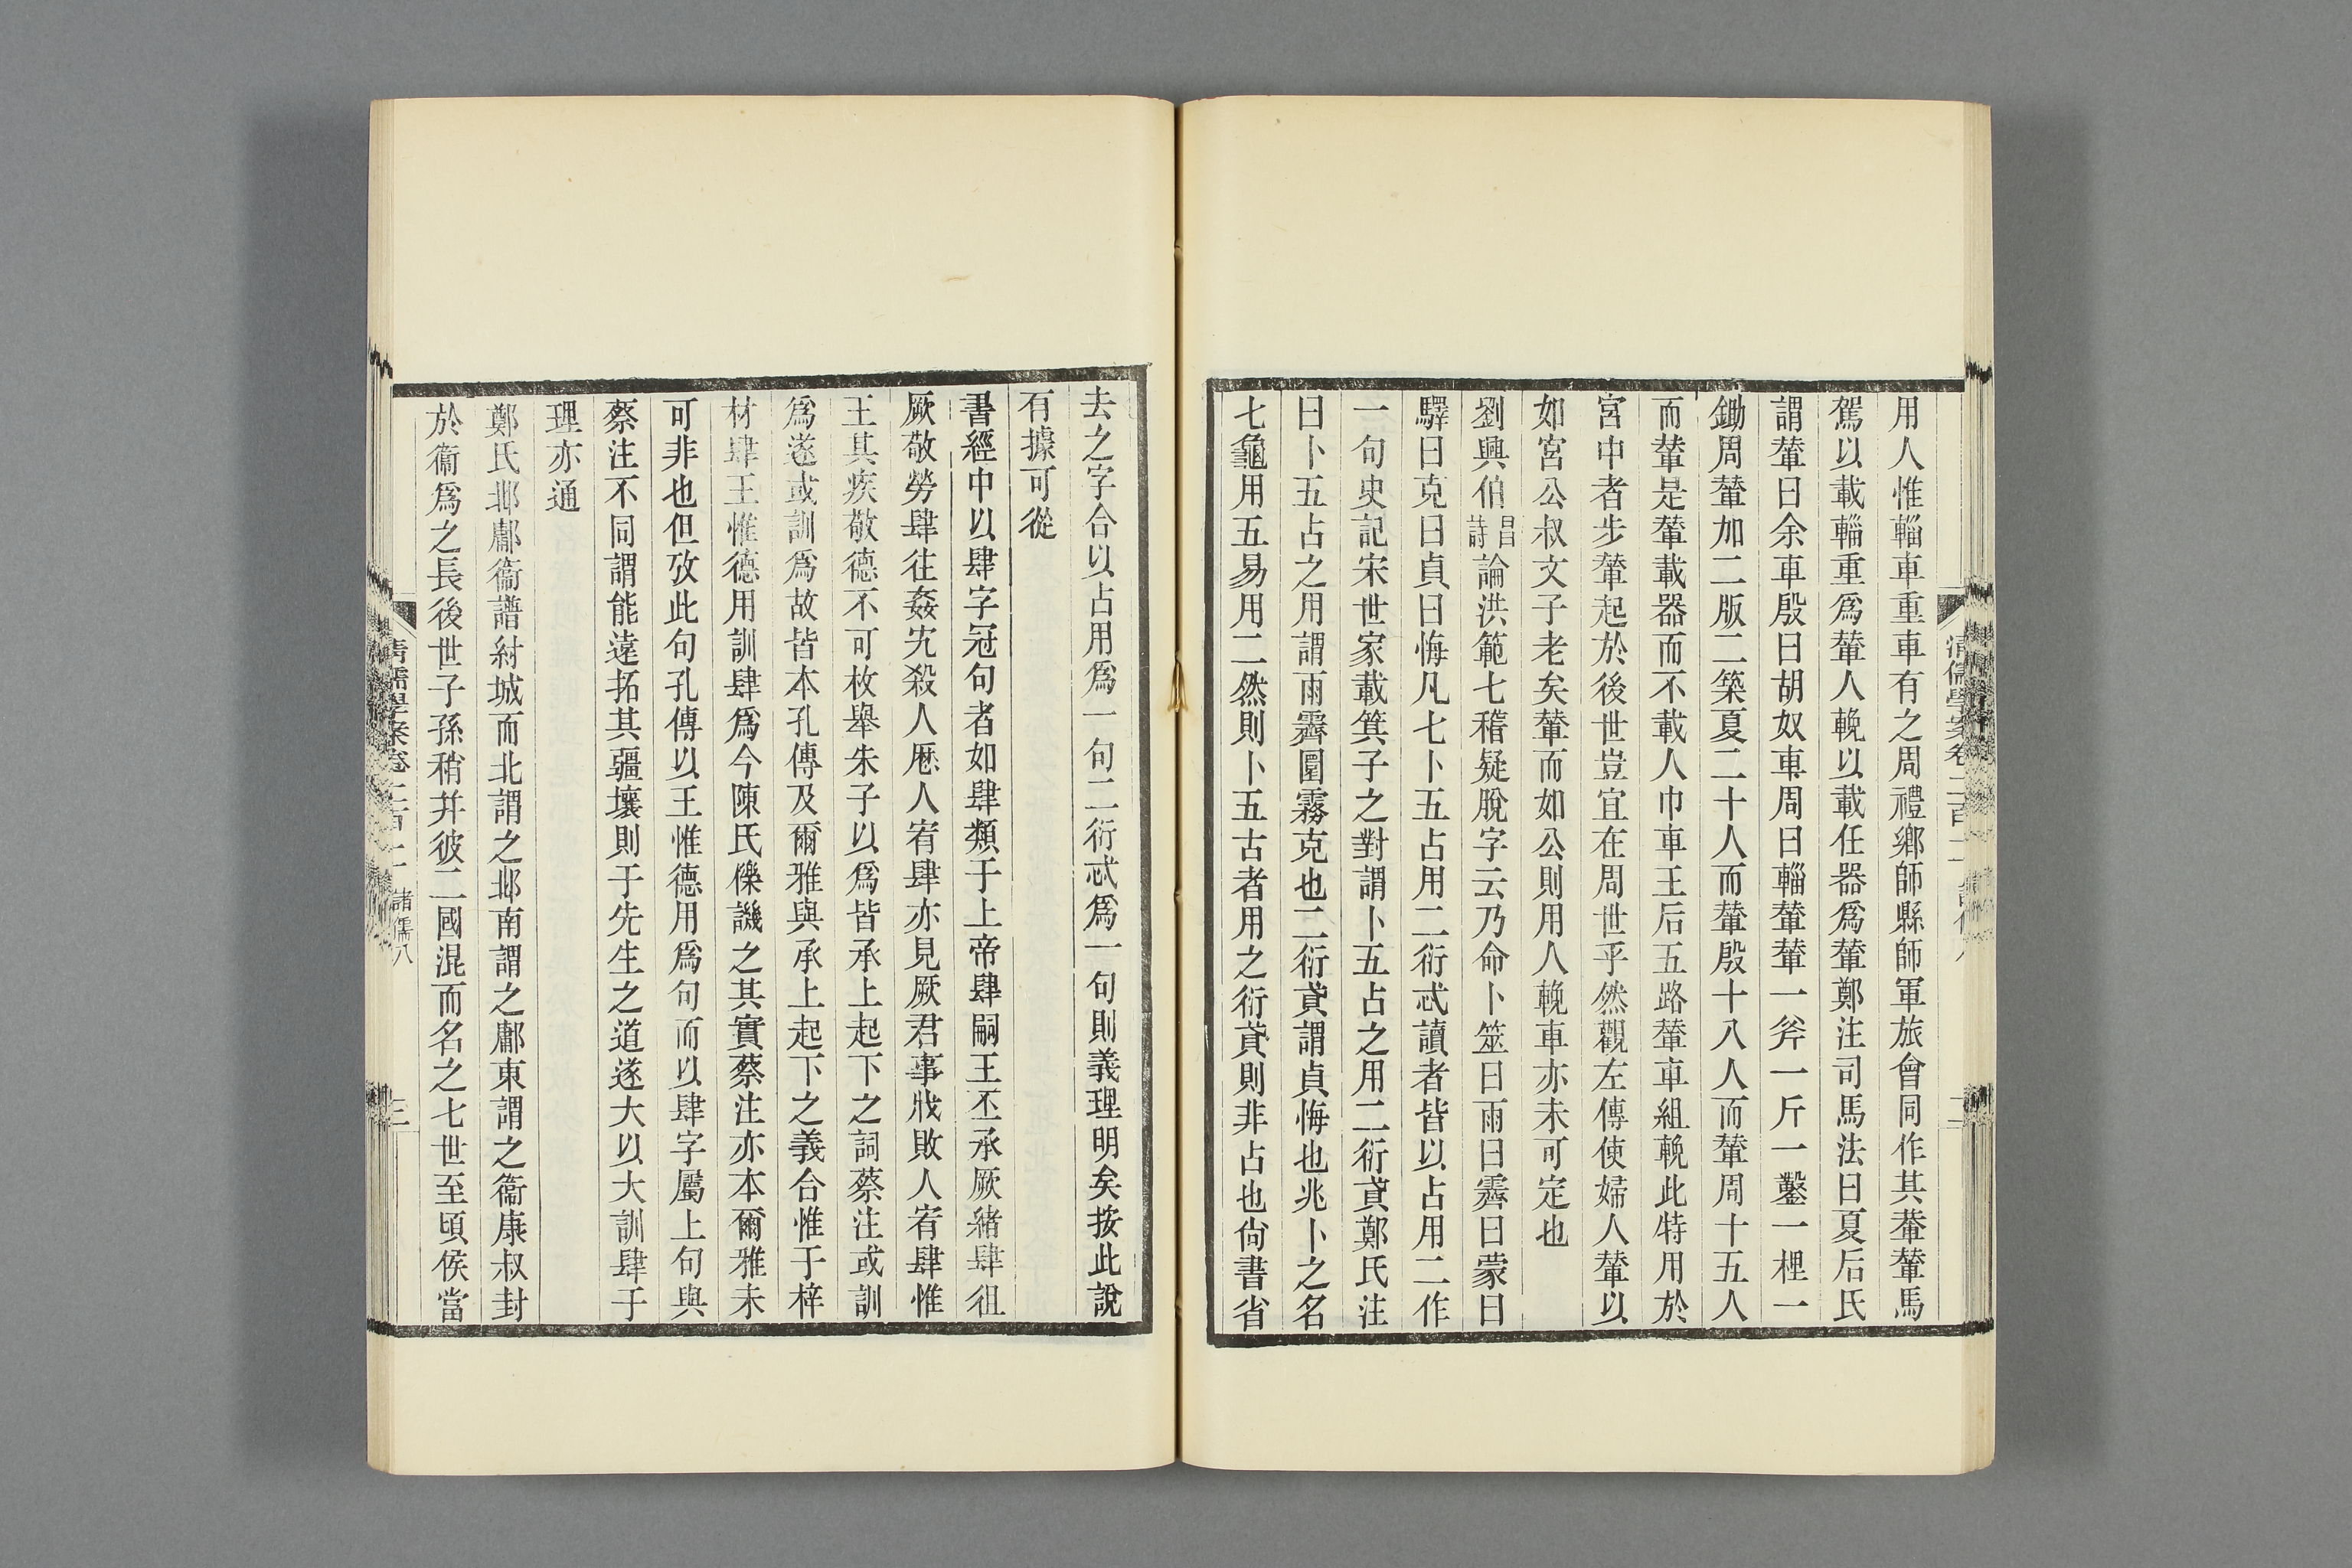 用人惟輜車重車有之周禮鄉師縣師軍旅會同作其輂輦馬
駕以載輜重爲輦人輓以載任器爲輦鄭注司馬法曰夏后氏
謂輦曰余車殷曰胡奴車周曰輜輦輦一斧一斤一鑿一梩一
鋤周輦加二版二築夏二十人而輦殷十八人而輦周十五人
而輦是輦載器而不載人巾車王后五路輦車組輓此特用於
宮中者步輦起於後世豈宜在周世乎然觀左傳使婦人輦以
如宮公叔文子老矣輦而如公則用人輓車亦未可定也
劉興伯昌詩論洪範七稽疑脫字云乃命卜筮曰雨曰霽曰蒙曰
驛曰克曰貞曰悔凡七卜五占用二衍忒讀者皆以占用二作
一句史記宋世家載箕子之對謂卜五占之用二衍貣鄭氏注
曰卜五占之用謂雨霽圛霧克也二衍貣謂貞悔也兆卜之名
七龜用五易用二然則卜五古者用之衍貣則非占也尙書省
清儒學案卷二百二 諸儒八 二
去之字合以占用爲一句二衍忒爲一句則義理明矣按此說
有據可從
書經中以肆字冠句者如肆類于上帝肆嗣王丕承厥緒肆徂
厥敬勞肆往姦宄殺人厯人宥肆亦見厥君事戕敗人宥肆惟
王其疾敬德不可枚舉朱子以爲皆承上起下之詞蔡注或訓
爲遂或訓爲故皆本孔傳及爾雅與承上起下之義合惟于梓
材肆王惟德用訓肆爲今陳氏櫟譏之其實蔡注亦本爾雅未
可非也但攷此句孔傳以王惟德用爲句而以肆字屬上句與
蔡注不同謂能遠拓其疆壤則于先生之道遂大以大訓肆于
理亦通
鄭氏邶鄘衞譜紂城而北謂之邶南謂之鄘東謂之衞康叔封
於衞爲之長後世子孫稍幷彼二國混而名之七世至頃侯當
清儒學案卷二百二 諸儒八 三